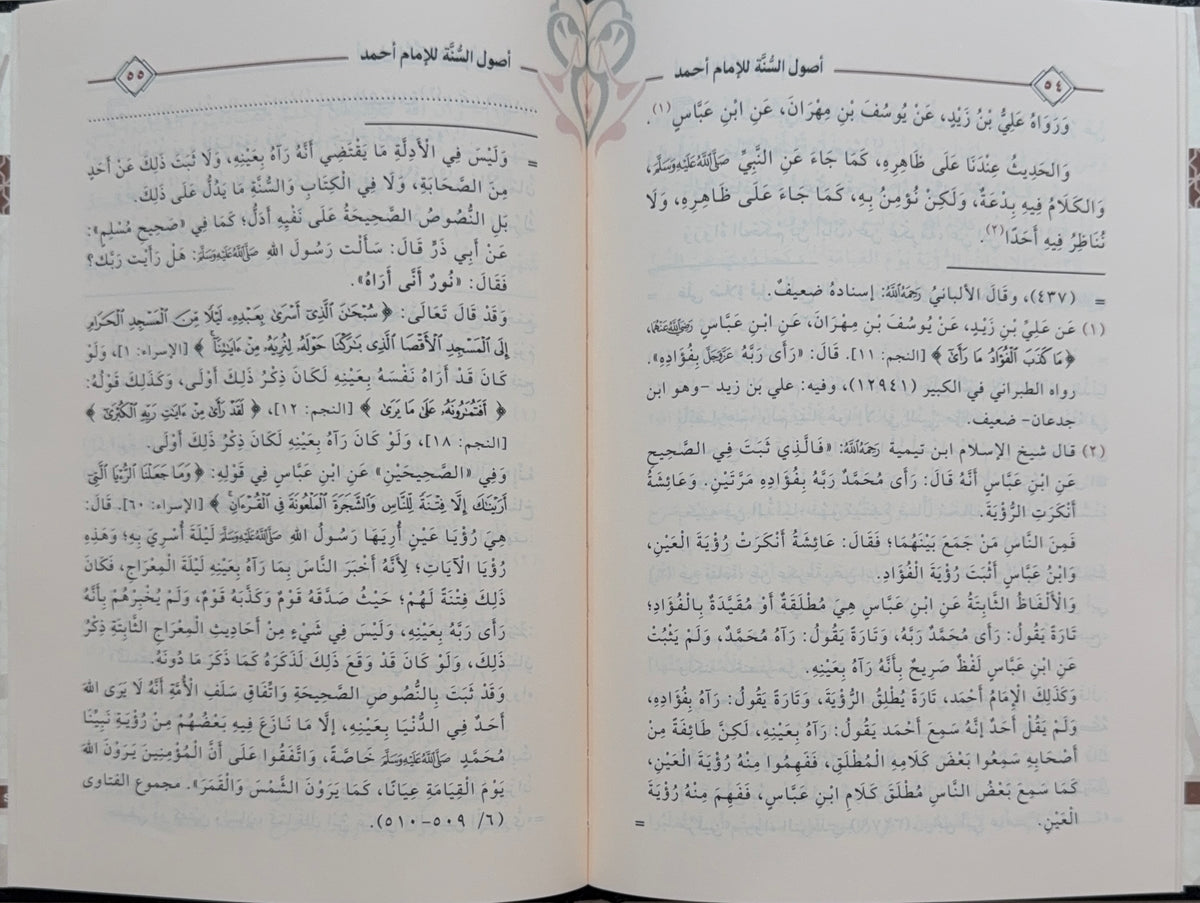 أصول السُّنَّة للإمام أحمد
٥٤
وَرَوَاهُ عَلِيُّ بْنُ زَيْدٍ، عَنْ يُوسُفَ بْنِ مِهْرَانَ، عَنِ ابْنِ عَبَّاسٍ (١).
وَالحَدِيثُ عِنْدَنَا عَلَى ظَاهِرِهِ، كَمَا جَاءَ عَنِ النَّبِيِّ ﷺ،
وَالكَلَامُ فِيهِ بِدْعَةٌ، وَلَكِنْ نُؤْمِنُ بِهِ، كَمَا جَاءَ عَلَى ظَاهِرِهِ، وَلَا
نُنَاظِرُ فِيهِ أَحَدًا(٢).
= (٤٣٧)، وقَالَ الألبانيُ رَحِمَهُ اللَّهُ: إسنادهُ ضعيفٌ.
(١) عَن عَلِيِّ بْنِ زَيْدٍ، عَنْ يُوسُفَ بْنِ مِهْرَانَ، عَنِ ابْنِ عَبَّاسٍ رَضِيَ اللَّهُ عَنْهُمَا،
﴿ مَا كَذَبَ الْفُؤَادُ مَا رَأَىٰ ﴾ [النجم: ١١]. قَالَ: «رَأى رَبَّهُ عَزَّ وَجَلَّ بِفُؤَادِهِ».
رواه الطبراني في الكبير (١٢٩٤١)، وفيه: علي بن زيد -وهو ابن
جدعان- ضعيف.
(٢) قال شيخ الإسلام ابن تيمية رَحِمَهُ اللَّهُ: «فَالَّذِي ثَبَتَ فِي الصَّحِيح
عَنِ ابْنِ عَبَّاسٍ أَنَّهُ قَالَ: رَأى مُحَمَّدٌ رَبَّهُ بِفُؤَادِهِ مَرَّتَيْنِ. وَعَائِشَةُ
أَنْكَرَتِ الرُّؤْيَةَ.
فَمِنَ النَّاسِ مَنْ جَمَعَ بَيْنَهُمَا؛ فَقَالَ: عَائِشَةُ أَنْكَرَتْ رُؤْيَةَ الْعَيْنِ،
وَابْنُ عَبَّاسٍ أَثْبَتَ رُؤْيَةَ الْفُؤَادِ.
وَالْأَلْفَاظُ الثَّابِتَةُ عَنِ ابْنِ عَبَّاسٍ هِيَ مُطْلَقَةٌ أَوْ مُقَيَّدَةٌ بِالْفُؤَادِ؛
تَارَةً يَقُولُ: رَأى مُحَمَّدٌ رَبَّهُ، وَتَارَةً يَقُولُ: رَآهُ مُحَمَّدٌ، وَلَمْ يَثْبُتْ
عَنِ ابْنِ عَبَّاسٍ لَفْظٌ صَرِيحٌ بِأَنَّهُ رَآهُ بِعَيْنِهِ.
وَكَذَلِكَ الْإِمَامُ أَحْمَد، تَارَةً يُطْلِقُ الرُّؤْيَةَ، وَتَارَةً يَقُولُ: رَآهُ بِفُؤَادِهِ،
وَلَمْ يَقُلْ أَحَدٌ إنَّهُ سَمِعَ أَحْمَد يَقُولُ: رَآهُ بِعَيْنِهِ، لَكِنَّ طَائِفَةً مِنْ
أَصْحَابِهِ سَمِعُوا بَعْضَ كَلَامِهِ الْمُطْلَقِ، فَفَهِمُوا مِنْهُ رُؤْيَةَ الْعَيْنِ،
كَمَا سَمِعَ بَعْضُ النَّاسِ مُطْلَقَ كَلَامِ ابْنِ عَبَّاسٍ، فَفَهِمَ مِنْهُ رُؤْيَةَ
الْعَيْنِ. =
أصول السُّنَّة للإمام أحمد
٥٥
= وَلَيْسَ فِي الْأَدِلَّةِ مَا يَقْتَضِي أَنَّهُ رَآهُ بِعَيْنِهِ، وَلَا ثَبَتَ ذَلِكَ عَنْ أَحَدٍ
مِنَ الصَّحَابَةِ، وَلَا فِي الْكِتَابِ وَالسُّنَّةِ مَا يَدُلُّ عَلَى ذَلِكَ.
بَلِ النُّصُوصُ الصَّحِيحَةُ عَلَى نَفْيِهِ أَدَلُّ؛ كَمَا فِي «صَحِيحِ مُسْلِمٍ»:
عَنْ أَبِي ذَرٍّ قَالَ: سَأَلْت رَسُولَ اللهِ ﷺ: هَلْ رَأَيْت رَبَّك؟
فَقَالَ: «نُورٌ أَنَّى أَرَاهُ».
وَقَدْ قَالَ تَعَالَى: ﴿ سُبْحَٰنَ الَّذِىٓ أَسْرَىٰ بِعَبْدِهِۦ لَيْلًا مِّنَ الْمَسْجِدِ الْحَرَامِ
إِلَى الْمَسْجِدِ الْأَقْصَا الَّذِى بَٰرَكْنَا حَوْلَهُۥ لِنُرِيَهُۥ مِنْ ءَايَٰتِنَآ ﴾ [الإسراء: ١]، وَلَوْ
كَانَ قَدْ أَرَاهُ نَفْسَهُ بِعَيْنِهِ لَكَانَ ذِكْرُ ذَلِكَ أَوْلَى، وَكَذَلِكَ قَوْلُهُ:
﴿ أَفَتُمَٰرُونَهُۥ عَلَىٰ مَا يَرَىٰ ﴾ [النجم: ١٢]، ﴿ لَقَدْ رَأَىٰ مِنْ ءَايَٰتِ رَبِّهِ الْكُبْرَىٰٓ ﴾
[النجم: ١٨]، وَلَوْ كَانَ رَآهُ بِعَيْنِهِ لَكَانَ ذِكْرُ ذَلِكَ أَوْلَى.
وَفِي «الصَّحِيحَيْنِ» عَنِ ابْنِ عَبَّاسٍ فِي قَوْلِهِ: ﴿ وَمَا جَعَلْنَا الرُّءْيَا الَّتِىٓ
أَرَيْنَٰكَ إِلَّا فِتْنَةً لِّلنَّاسِ وَالشَّجَرَةَ الْمَلْعُونَةَ فِى الْقُرْءَانِ ﴾ [الإسراء: ٦٠]. قَالَ:
هِيَ رُؤْيَا عَيْنٍ أُرِيَهَا رَسُولُ اللهِ ﷺ لَيْلَةَ أُسْرِيَ بِهِ؛ وَهَذِهِ
رُؤْيَا الْآيَاتِ؛ لِأَنَّهُ أَخْبَرَ النَّاسَ بِمَا رَآهُ بِعَيْنِهِ لَيْلَةَ الْمِعْرَاجِ، فَكَانَ
ذَلِكَ فِتْنَةً لَهُمْ؛ حَيْثُ صَدَّقَهُ قَوْمٌ وَكَذَّبَهُ قَوْمٌ، وَلَمْ يُخْبِرْهُمْ بِأَنَّهُ
رَأى رَبَّهُ بِعَيْنِهِ، وَلَيْسَ فِي شَيْءٍ مِنْ أَحَادِيثِ الْمِعْرَاجِ الثَّابِتَةِ ذِكْرُ
ذَلِكَ، وَلَوْ كَانَ قَدْ وَقَعَ ذَلِكَ لَذَكَرَهُ كَمَا ذَكَرَ مَا دُونَهُ.
وَقَدْ ثَبَتَ بِالنُّصُوصِ الصَّحِيحَةِ وَاتِّفَاقِ سَلَفِ الْأُمَّةِ أَنَّهُ لَا يَرَى اللهَ
أَحَدٌ فِي الدُّنْيَا بِعَيْنِهِ، إلَّا مَا نَازَعَ فِيهِ بَعْضُهُمْ مِنْ رُؤْيَةِ نَبِيِّنَا
مُحَمَّدٍ ﷺ خَاصَّةً، وَاتَّفَقُوا عَلَى أَنَّ الْمُؤْمِنِينَ يَرَوْنَ اللهَ
يَوْمَ الْقِيَامَةِ عِيَانًا، كَمَا يَرَوْنَ الشَّمْسَ وَالْقَمَرَ». مجموع الفتاوى
(٦/ ٥٠٩-٥١٠).